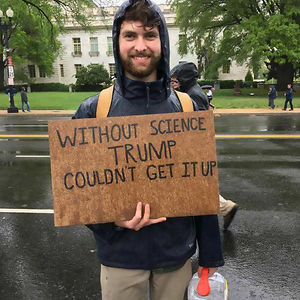 WITHOUT SCIENCE
TRUMP
COULDN'T GET IT UP